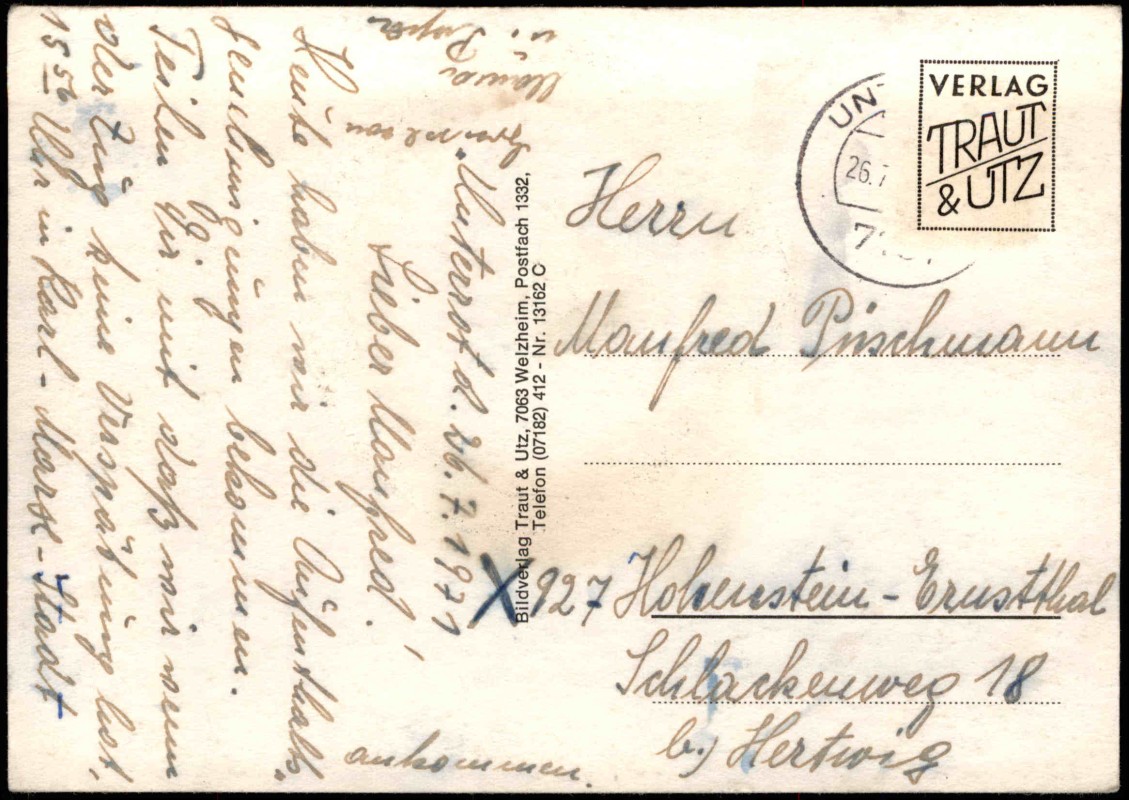 Unterrot d. 26.7.1971
Lieber Manfred!
Heute haben wir die Aufenthalts„
genehmigungen bekommen.
Teilen Dir mit daß wir wenn
der Zug keine Verspätung hat,
15 56 Uhr in Karl-Marx-Stadt
ankommen.
Mama
u. Papa
Bildverlag Traut & Utz, 7063 Welzheim, Postfach 1332,
Telefon (07182) 412 - Nr. 13162 C
UNT
26.7
VERLAG
TRAUT
& UTZ
Herrn
Manfred Püschmann
X 927 Hohenstein-Ernstthal
Schlackenweg 18
b. Hertwig